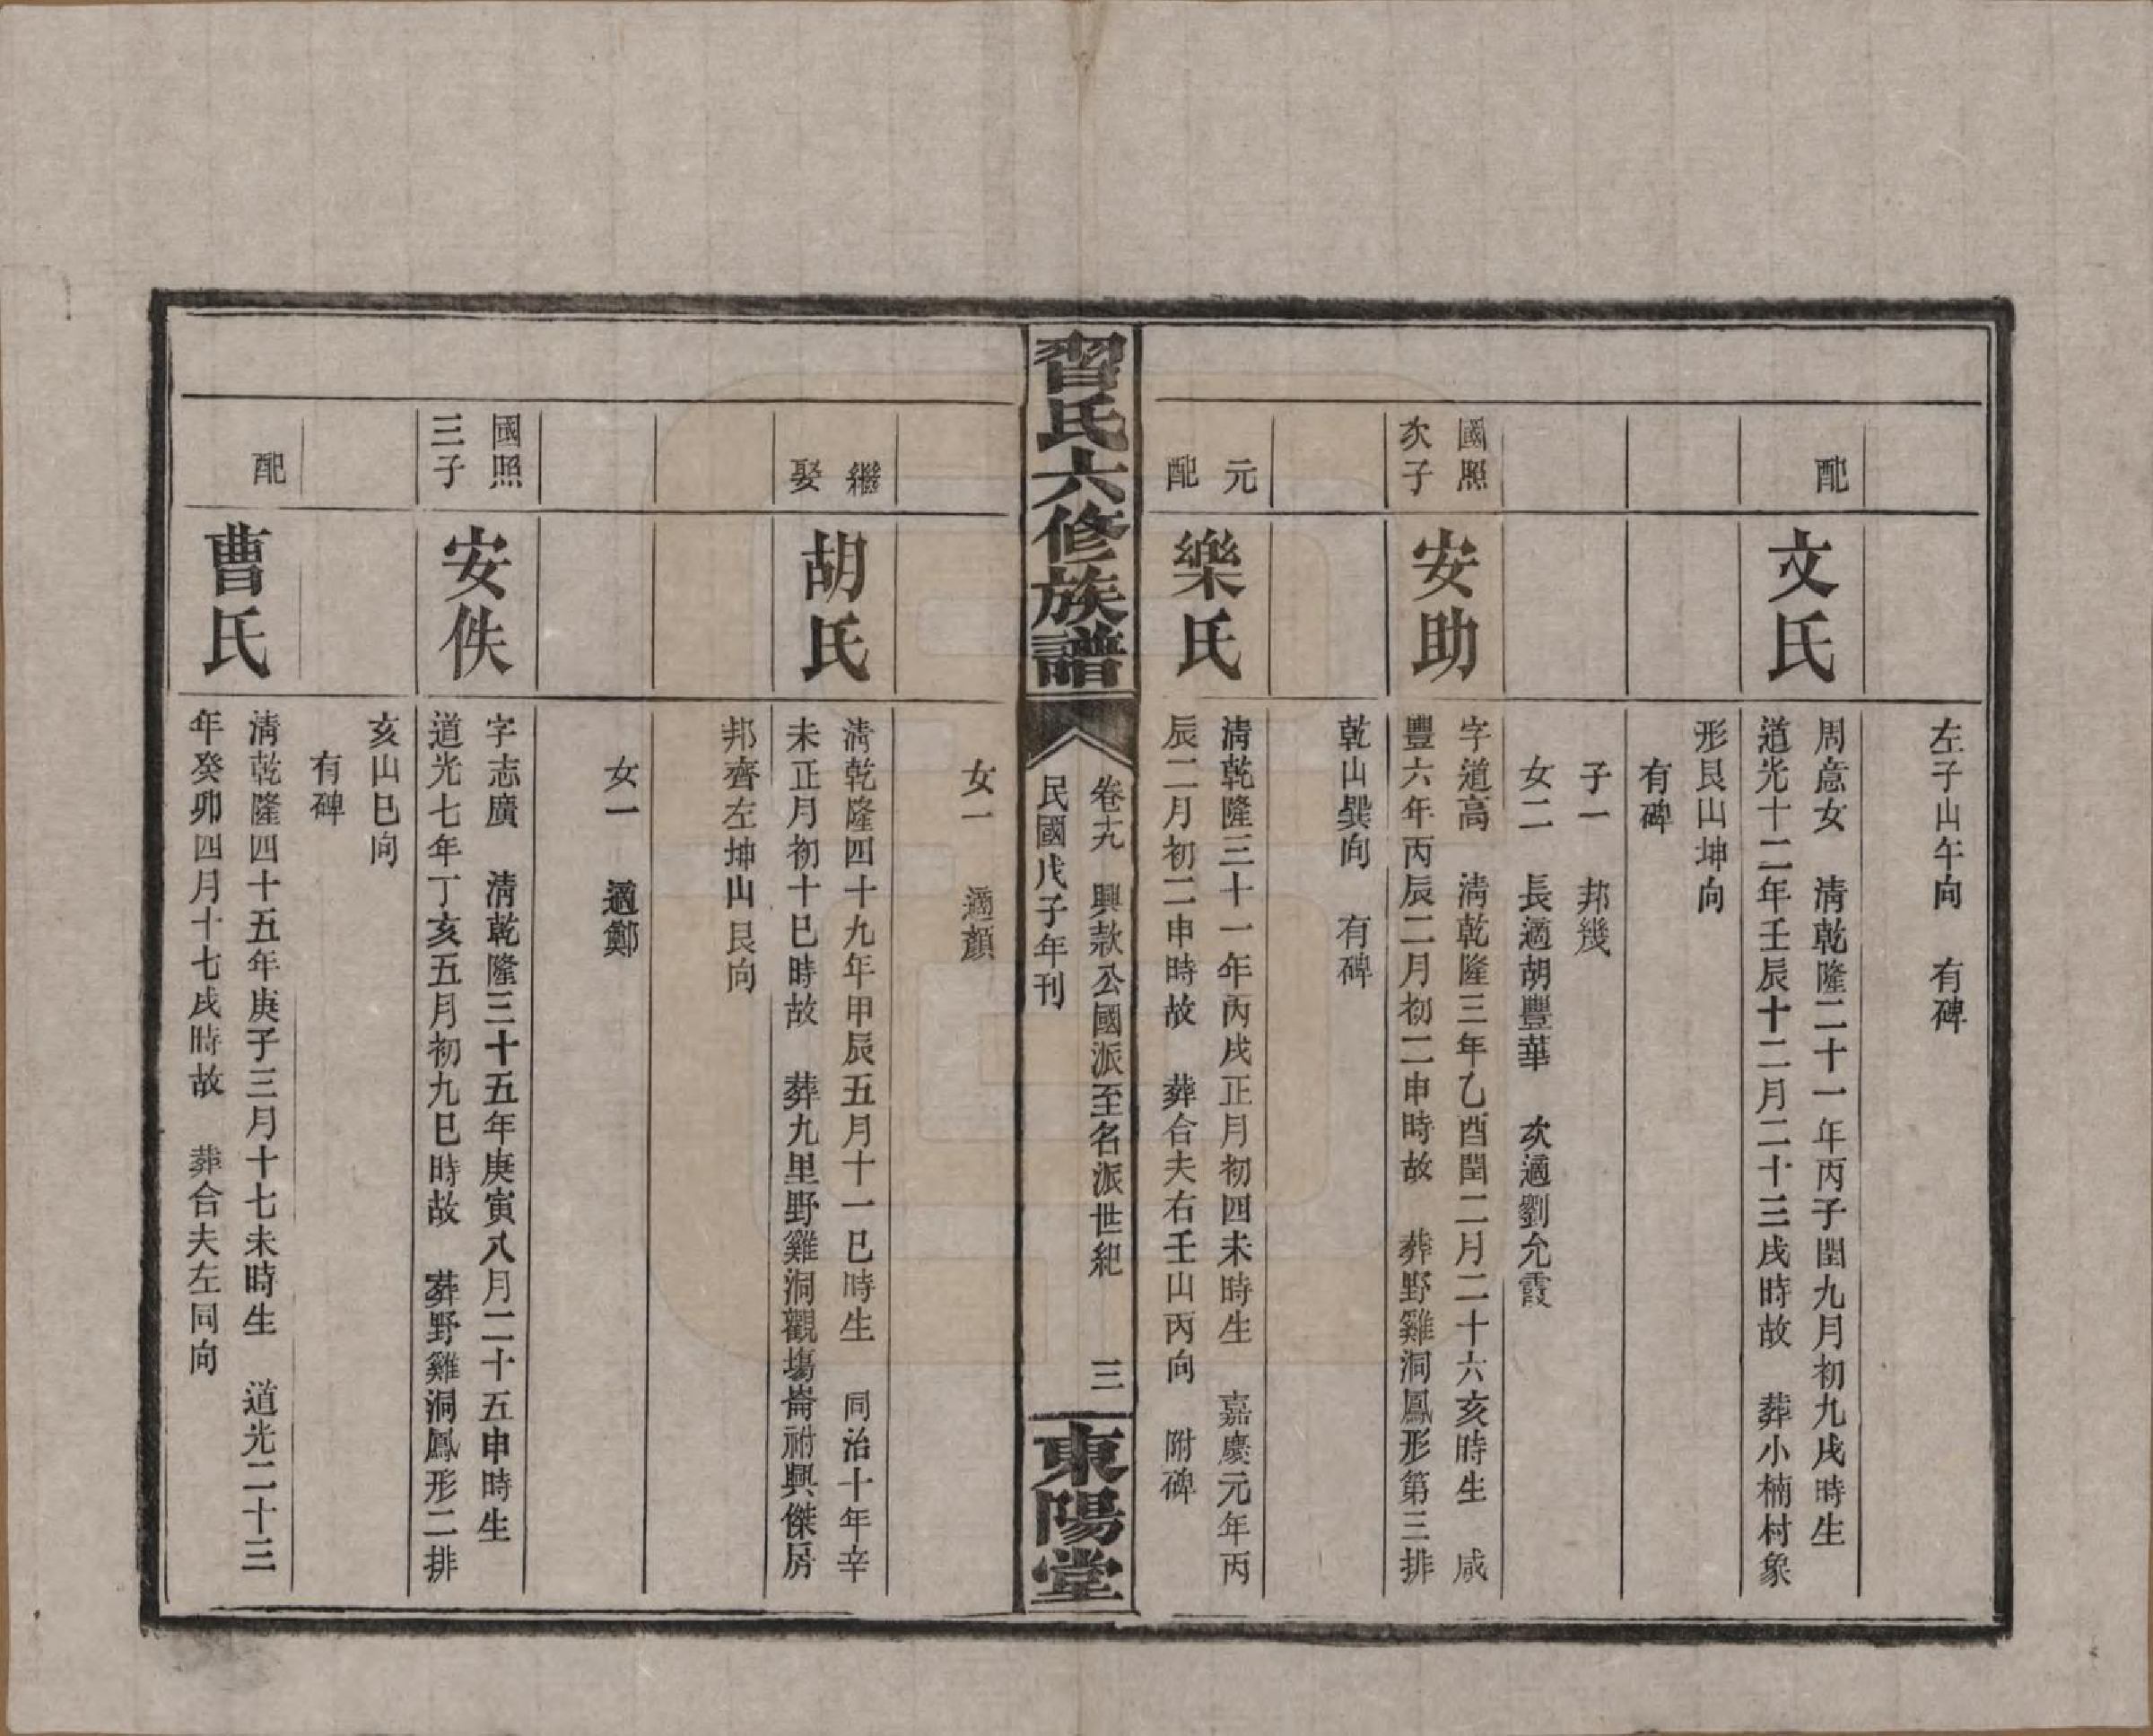 左子山午向　有碑
配
文氏
周意女　清乾隆二十一年丙子閏九月初九戌時生
道光十二年壬辰十二月二十三戌時故　葬小楠村象
形艮山坤向
有碑
子一　邦幾
女二　長適胡豐華　次適劉允霞
國照
次子
安助
字道高　清乾隆三年乙酉閏二月二十六亥時生　咸
豐六年丙辰二月初二申時故　葬野雞洞鳳形第三排
乾山巽向　有碑
元
配
樂氏
清乾隆三十一年丙戌正月初四未時生　嘉慶元年丙
辰二月初二申時故　葬合夫右壬山丙向　附碑
習氏六修族譜
卷十九　興款公國派至名派世紀　三
民國戊子年刊
東陽堂
女一　適顏
繼
娶
胡氏
清乾隆四十九年甲辰五月十一巳時生　同治十年辛
未正月初十巳時故　葬九里野雞洞觀塲崙祔興傑房
邦齊左坤山艮向
女一　適鄭
國照
三子
安佚
字志廣　清乾隆三十五年庚寅八月二十五申時生
道光七年丁亥五月初九巳時故　葬野雞洞鳳形二排
亥山巳向
有碑
配
曹氏
清乾隆四十五年庚子三月十七未時生　道光二十三
年癸卯四月十七戌時故　葬合夫左同向